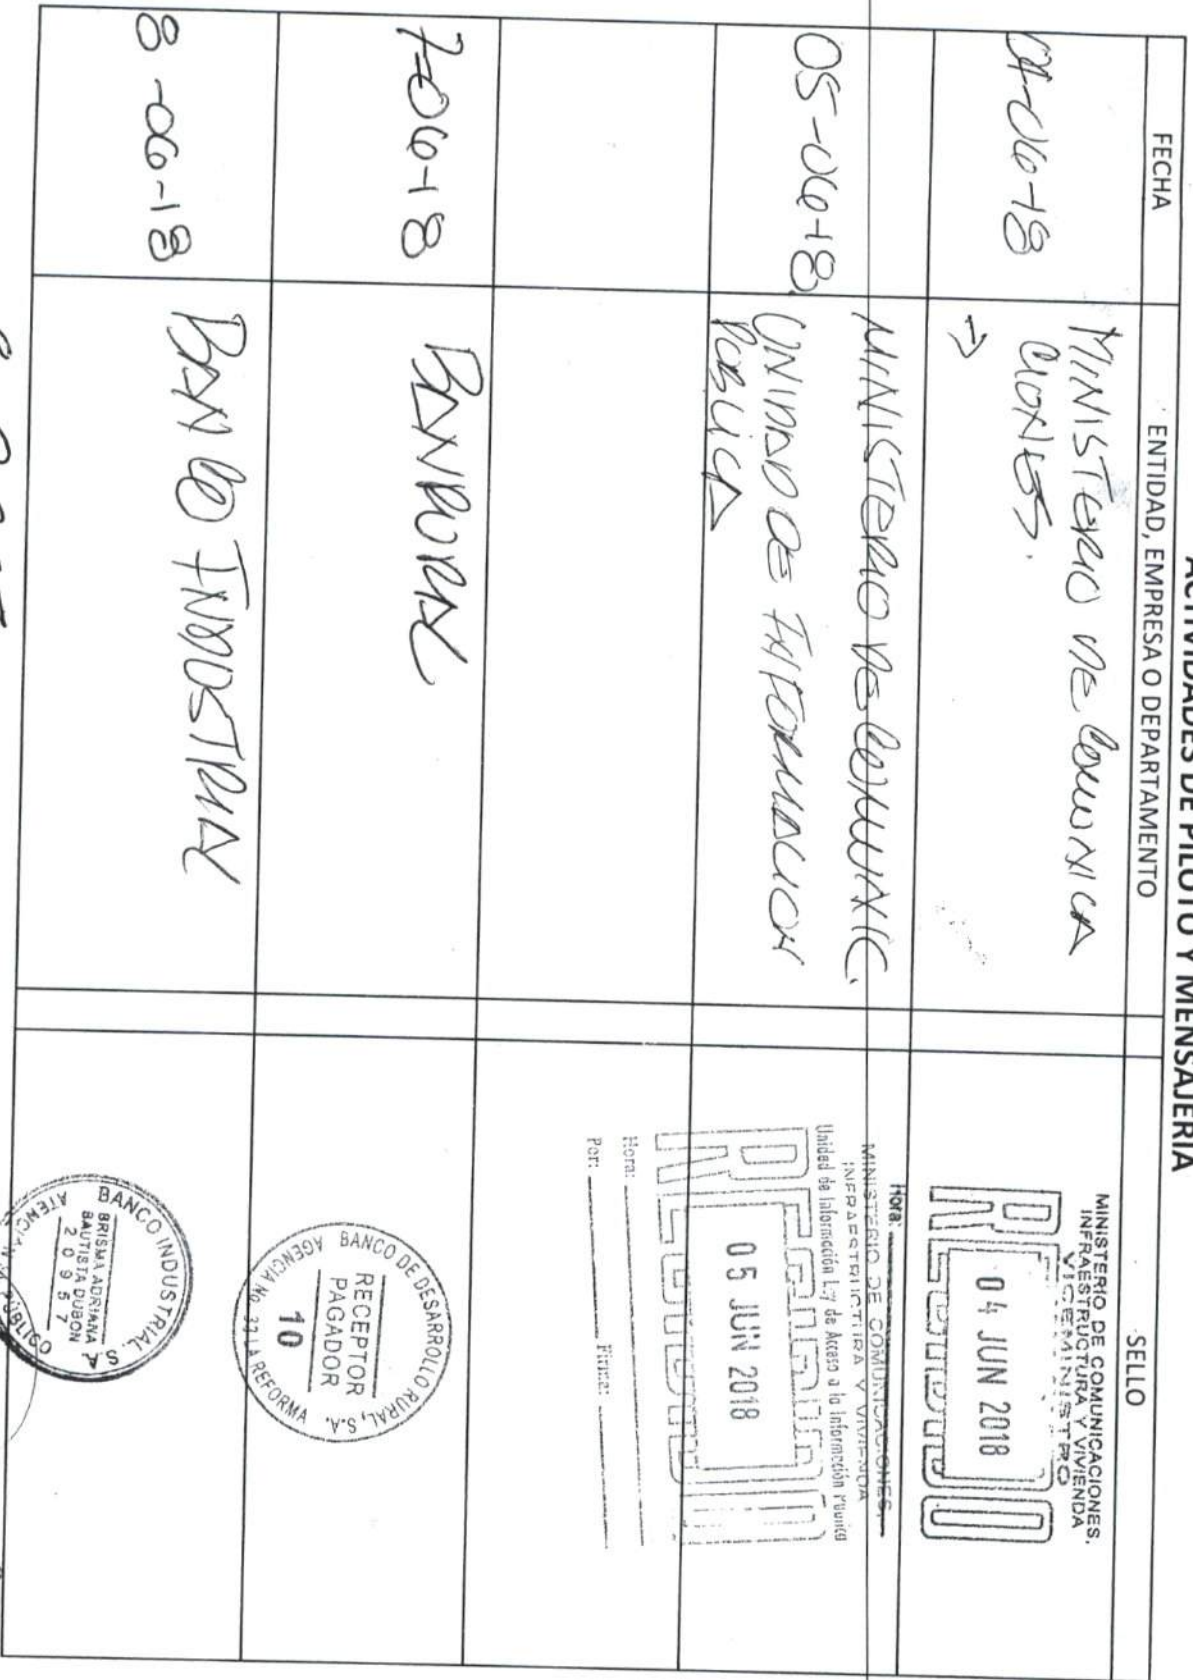 ACTIVIDADES DE PILOTO Y MENSAJERIA
FECHA
ENTIDAD, EMPRESA O DEPARTAMENTO
SELLO
04-06-18
MINISTERIO DE COMUNICA
CIONES.
→
MINISTERIO DE COMUNICACIONES,
INFRAESTRUCTURA Y VIVIENDA
VICEMINISTRO
RECIBIDO
04 JUN 2018
Hora:
05-06-18
MINISTERIO DE COMUNIC.
UNIDAD DE INFORMACION
PUBLICA
MINISTERIO DE COMUNICACIONES,
INFRAESTRUCTURA Y VIVIENDA
Unidad de Información Ley de Acceso a la Información Pública
RECIBIDO
05 JUN 2018
Hora:
Por: Firma:
7-06-18
BANRURAL
BANCO DE DESARROLLO RURAL, S.A.
RECEPTOR
PAGADOR
10
AGENCIA No. 37 LA REFORMA
8-06-18
BANCO INDUSTRIAL
BANCO INDUSTRIAL, S A
BRISMA ADRIANA
BAUTISTA DUBON
20957
ATENCIÓN AL PÚBLICO